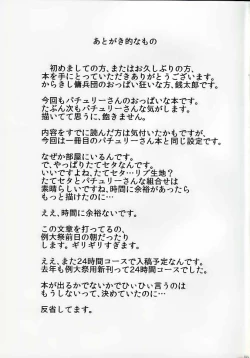 あとがき的なもの
初めましての方、またはお久しぶりの方、
本を手にとっていただきありがとうございます。
からきし傭兵団のおっぱい狂いな方、銭太郎です。
今回もパチュリーさんのおっぱい本です。
たぶん次もパチュリーさんな気がします。
描いてて思うに、飽きません。
内容をすでに読んだ方は気付いたかもですが、
今回は一冊目のパチュリー本と同じ設定です。
なぜか部屋にいるんです。
で、やっぱりたてセタなんです。
いいですよね、たてセタ…リブ生地？
たてセタとパチュリーさんな組合せは
素晴らしいですね、時間に余裕があったら
もっと描けたのに…
ええ、時間に余裕ないです。
この文章を打ってるの、
例大祭前日の朝だったり
します。ギリギリすぎます。
ええ、また24時間コースで入稿予定なんです。
去年も例大祭用新刊って24時間コースでした。
本が出るかでないかでひぃひぃ言うのは
もうしないって、決めていたのに…
反省してます。